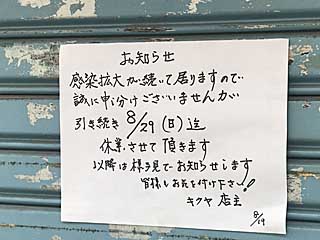 お知らせ
感染拡大が続いて居りますので
誠に申し分けございませんが
引き続き 8/29(日)迄
休業させて頂きます
以降は様子見てお知らせします
皆様もお気を付け下さい!
キクヤ 店主
8/19